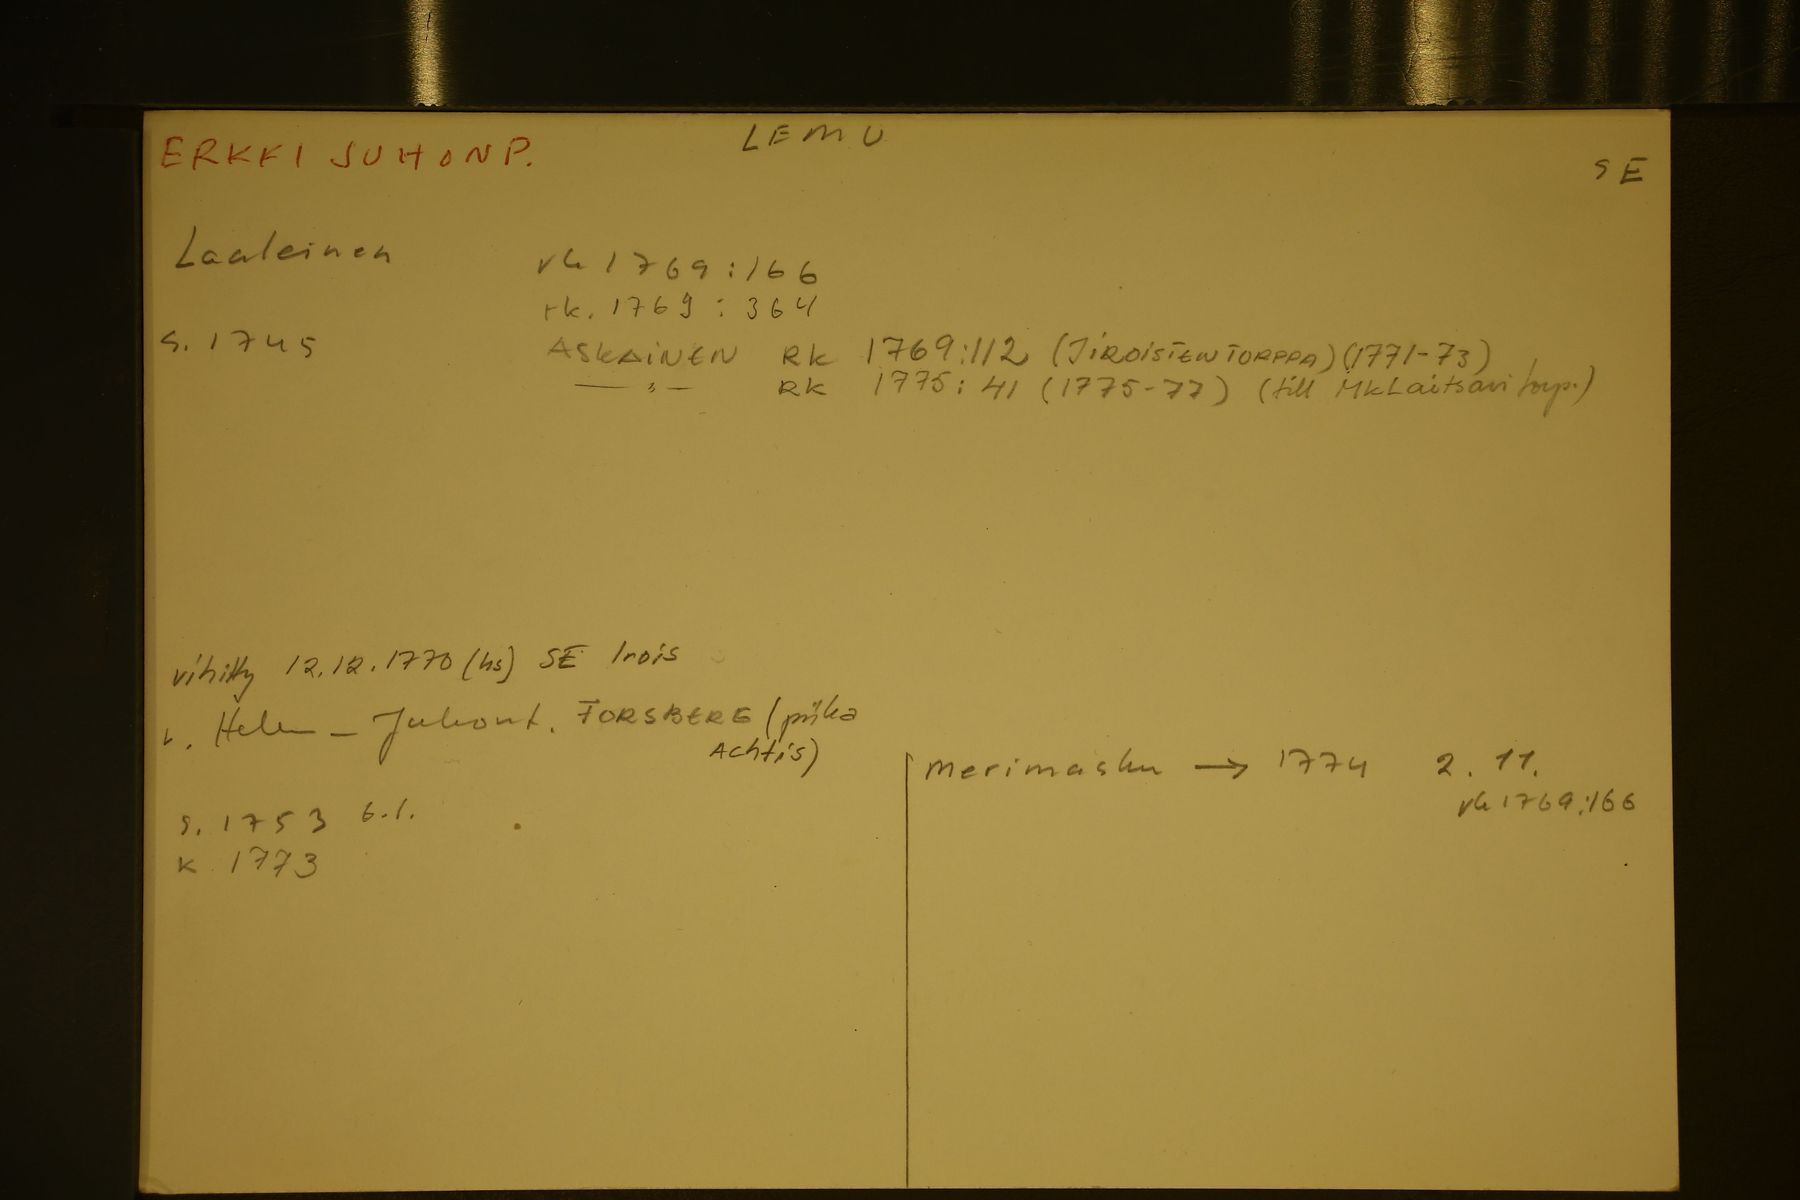 ERKKI JUHONP.
LEMU
SE
Laaleinen
vk 1769:166
rk. 1769: 364
s. 1745
ASKAINEN RK 1769:112 (IIROISTEN TORPPA) (1771-73)
— " — RK 1775: 41 (1775-77) (till Mk Laitsari torp.)
vihitty 12.12.1770 (hs) SE Irois
v. Helena Juhont. FORSBERG (piika
Achtis)
s. 1753 6.1.
k 1773
merimasku → 1774 2.11.
vk 1769:166